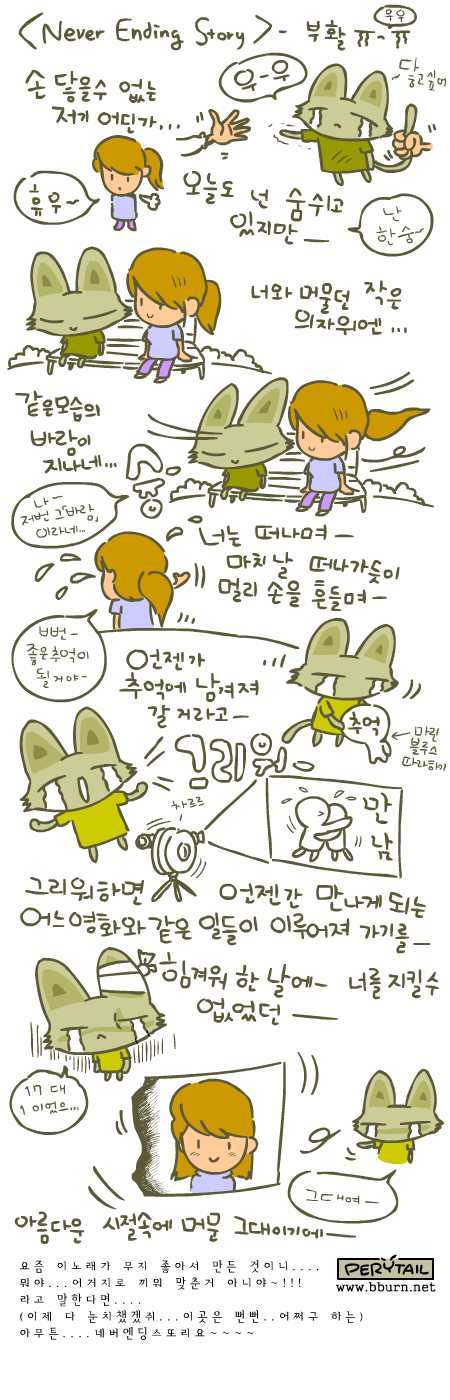 <Never Ending Story> - 부활 ㅠ~ㅠ
우우
우-우
손 닿을수 없는
저기 어딘가...
휴우~
오늘도 넌 숨쉬고
있지만ㅡ
난
한숨~
너와 머물던 작은
의자위엔...
같은모습의
바람이
지나네...
나ㅡ
저번 그「바람」
이라네...
너는 떠나며ㅡ
마치 날 떠나가듯이
멀리 손을 흔들며ㅡ
ㅂㅂㅓㄴㅡ
좋은추억이
될거야~
언젠가
추억에 남겨져
갈 거라고ㅡ
추억
마린
블루스
따라하기
그리워
차르르
만
남
그리워하면 언젠간 만나게 되는
어느영화와 같은 일들이 이루어져 가기를ㅡ
힘겨워 한 날에ㅡ 너를 지킬수
없었던ㅡ
17 대
1 이었으...
그대여ㅡ
아름다운 시절속에 머문 그대이기에ㅡ
요즘 이노래가 무지 좋아서 만든 것이니....
뭐야...어거지로 끼워 맞춘거 아니야~!!!
라고 말한다면....
(이제 다 눈치챘겠쥐...이곳은 뻔뻔..어쩌구 하는)
아무튼....네버엔딩스또리요~~~~
PERYTAIL
www.bburn.net